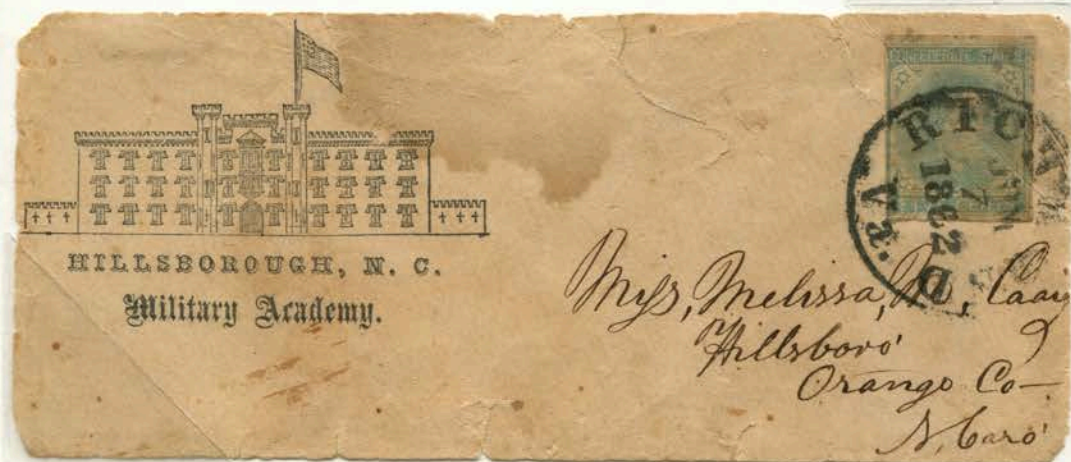 HILLSBOROUGH, N. C.
Military Academy.
CONFEDERATE STATES
RICHMOND
Va.
7
1862
Miss, Melissa,
Hillsboro'
Orange Co—
N, Caro'